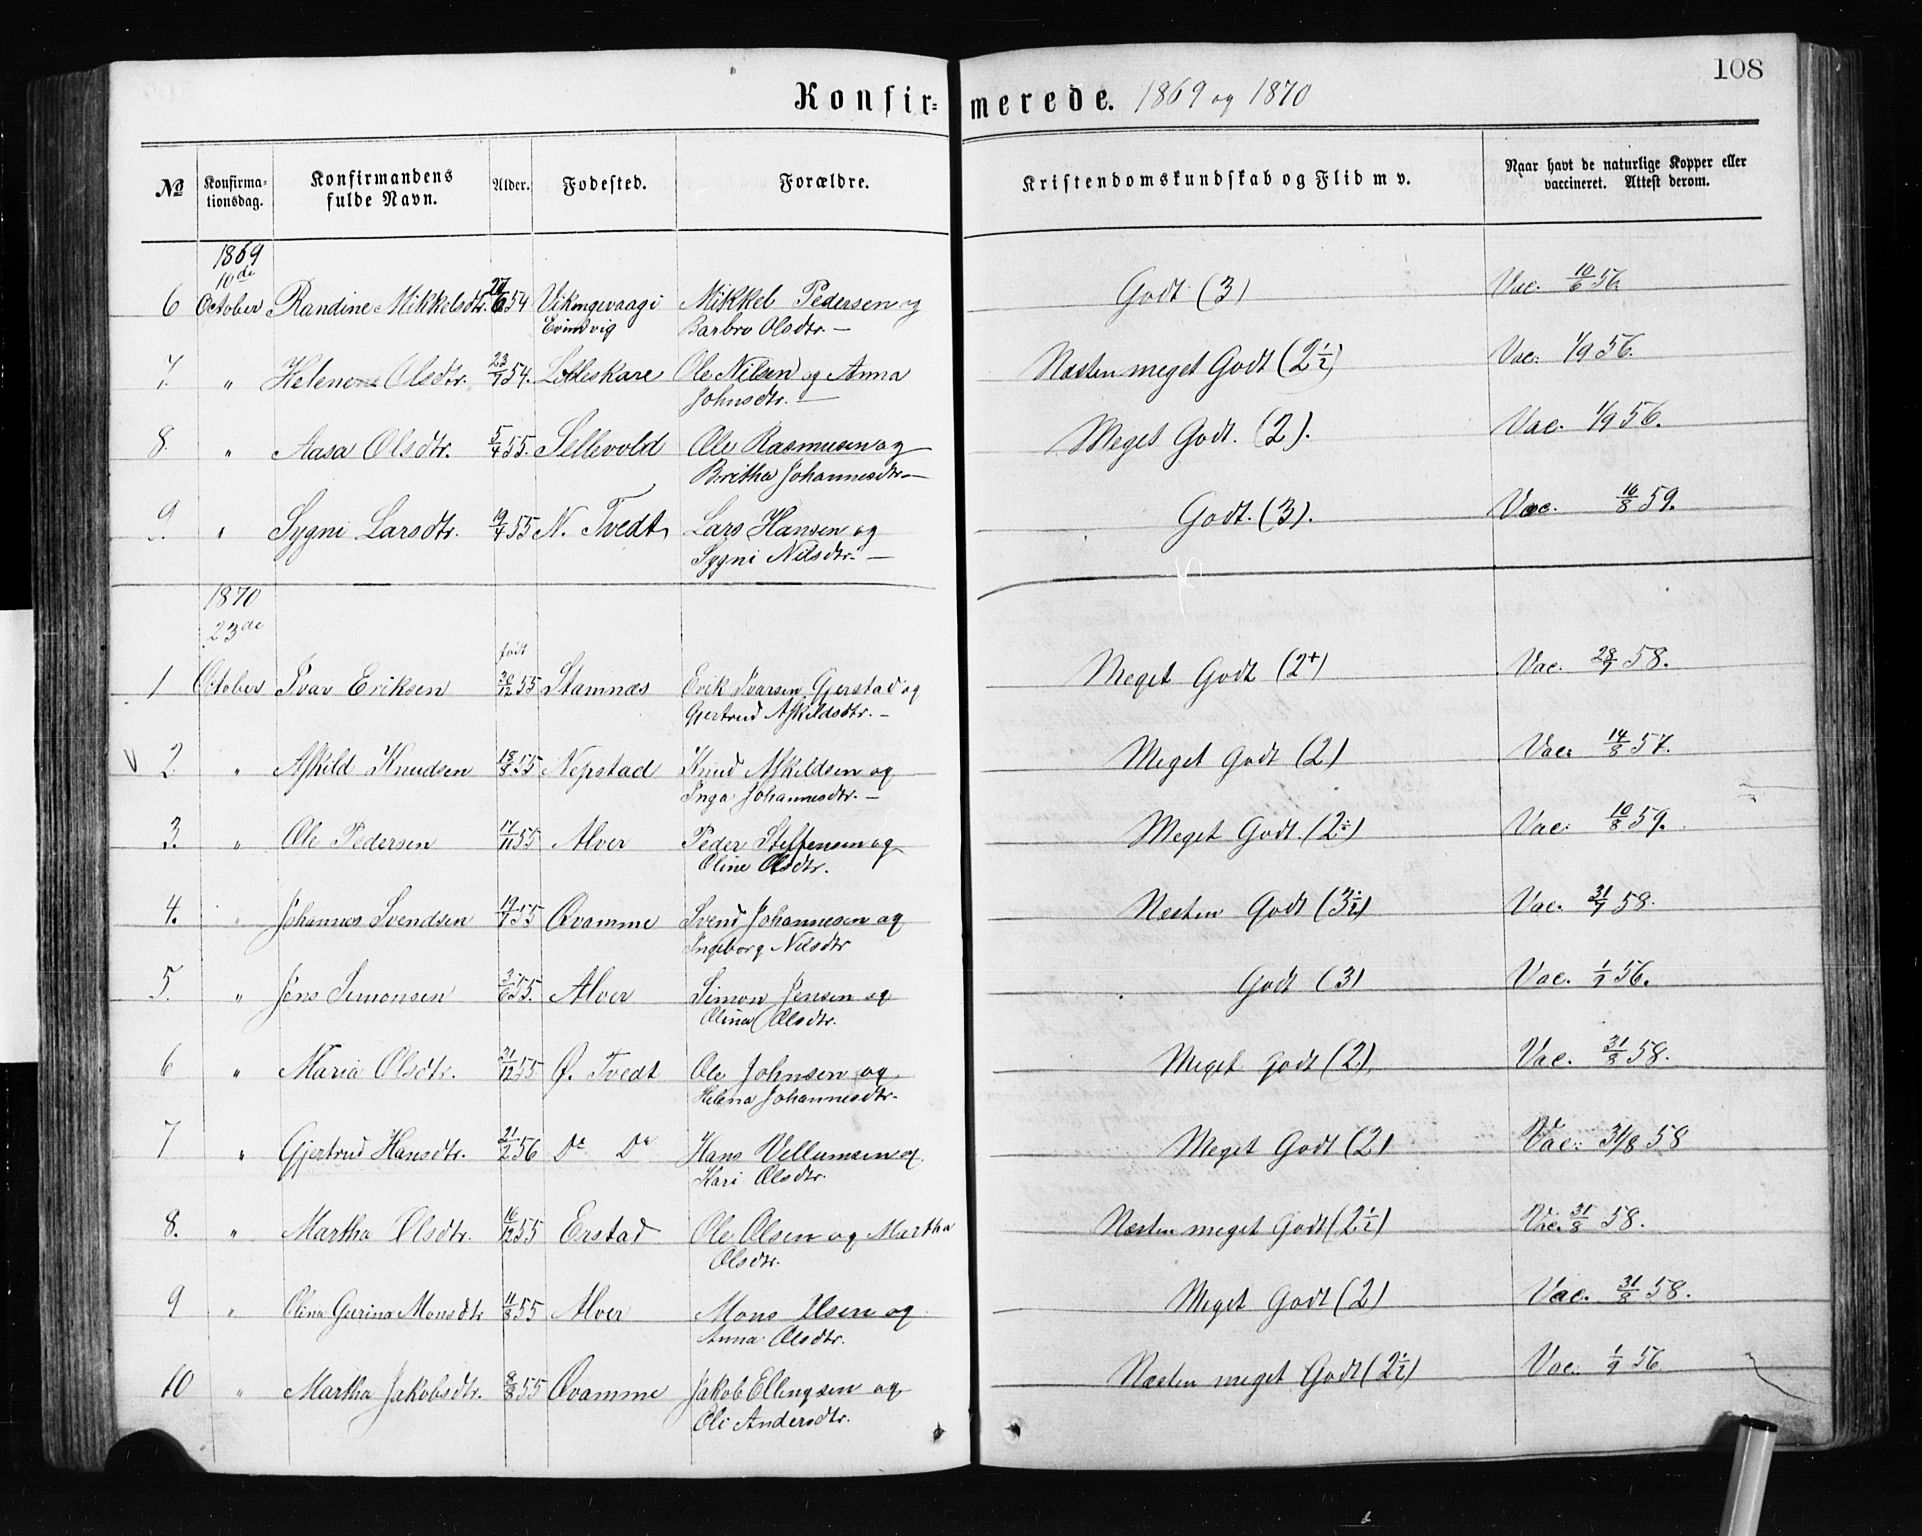 108
Konfir- merede. 1869 og 1870
№ Konfirma- tionsdag. Konfirmandens fulde Navn. Alder. Fødested. Forældre. Kristendomskundskab og Flid m v. Naar havt de naturlige Kopper eller vaccineret. Attest derom.
1869
10de
6 October Randine Mikkelsdtr. 54 Mikkel Pedersen og Godt (3) Vac. 10/6 56.
Evindvig Barbro Olsdtr. —
7. " Helene Olsdtr. 23/7 54. Ole Nilsen og Anna Næsten meget Godt (2½) Vac. 1/9 56.
Johnsdtr. —
8. " Aasa Olsdtr. 5/4 55. Sellevold Ole Rasmusen og Meget Godt. (2). Vac. 1/9 56.
Britha Johannesdtr. —
9. " Sygni Larsdtr. 19/4 55 N. Tvedt Lars Hansen og Godt. (3). Vac. 16/8 59.
Sygni Nilsdtr. —
1870
23de
født
1 October Ivar Eriksen 30/12 55 Stamnæs Erik Ivarsen Gjerstad og Meget Godt (2+) Vac. 28/7 58.
Gjertrud Askildsdtr. —
2. " Askild Knudsen 18/8 55 Nepstad Knud Askildsen og Meget Godt (2) Vac. 14/8 57.
Inga Johannesdtr. —
3. " Ole Pedersen 17/11 55 Alver Peder Steffensen og Meget Godt. (2÷) Vac. 10/8 59.
Oline Olsdtr.
4. " Johannes Svendsen 19/7 55 Qvamme Svend Johannesen og Næsten Godt (3½) Vac. 31/7 58.
Ingeborg Nilsdtr
5. " Jens Simonsen 3/6 55. Alver Simon Jensen og Godt (3) Vac. 1/9 56.
Olina Olsdtr.
6 " Maria Olsdtr. 31/12 55 Ø. Tvedt Ole Johnsen og Meget godt (2). Vac. 31/8 58.
Helena Johannesdtr.
7 " Gjertrud Hansdtr. 21/2 56 Do Do Hans Vellumsen og Meget Godt (2) Vac. 31/8 58
Kari Olsdtr.
8. " Martha Olsdtr. 16/12 55 Erstad Ole Olsen og Martha Næsten meget Godt (2½) Vac. 31/8 58.
Olsdtr.
9 " Olina Gurina Monsdtr 11/8 55 Alver Mons Olsen og Meget Godt (2) Vac. 31/8 58.
Anna Olsdtr.
10 " Martha Jakobsdtr. 8/8 55 Qvamme Jakob Ellingsen og Næsten meget Godt (2½) Vac. 1/9 56
Oli Andersdtr.